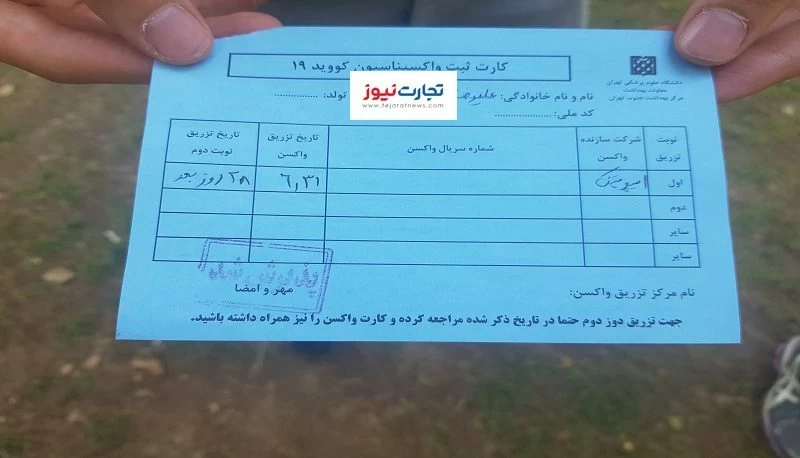 کارت ثبت واکسیناسیون کووید ۱۹
دانشگاه علوم پزشکی تهران
معاونت بهداشت
مرکز بهداشت جنوب تهران
تجارت‌نیوز
www.tejaratnews.com
نام و نام خانوادگی: تولد: ................
کد ملی: ......................
نوبت تزریق شرکت سازنده واکسن شماره سریال واکسن تاریخ تزریق واکسن تاریخ تزریق نوبت دوم
اول ۶٫۳۱ ۲۸ روز بعد
دوم
سایر
سایر
نام مرکز تزریق واکسن:
مهر و امضا
جهت تزریق دوز دوم حتما در تاریخ ذکر شده مراجعه کرده و کارت واکسن را نیز همراه داشته باشید.